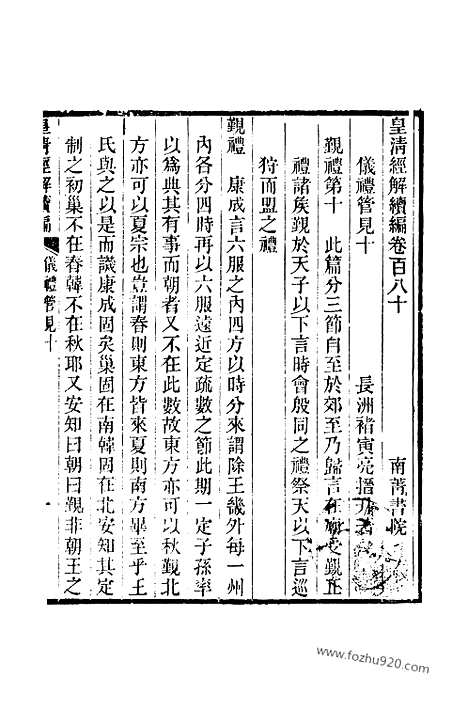 皇清經解續編卷百八十
南菁書院
儀禮管見十
長洲褚寅亮搢升著
覲禮第十 此篇分三節自至於郊至乃歸言在廟受覲正
禮諸矦覲於天子以下言時會殷同之禮祭天以下言巡
狩而盟之禮
覲禮 康成言六服之內四方以時分來謂除王畿外每一州
內各分四時再以六服遠近定疏數之節此期一定子孫率
以爲典其有事而朝者又不在此數故東方亦可以秋覲北
方亦可以夏宗也豈謂春則東方皆來夏則南方畢至乎王
氏與之以是而譏康成固矣巢固在南韓固在北安知其定
制之初巢不在春韓不在秋耶又安知曰朝曰覲非朝王之
皇清經解續編
儀禮管見十
一
www.fozhu920.com